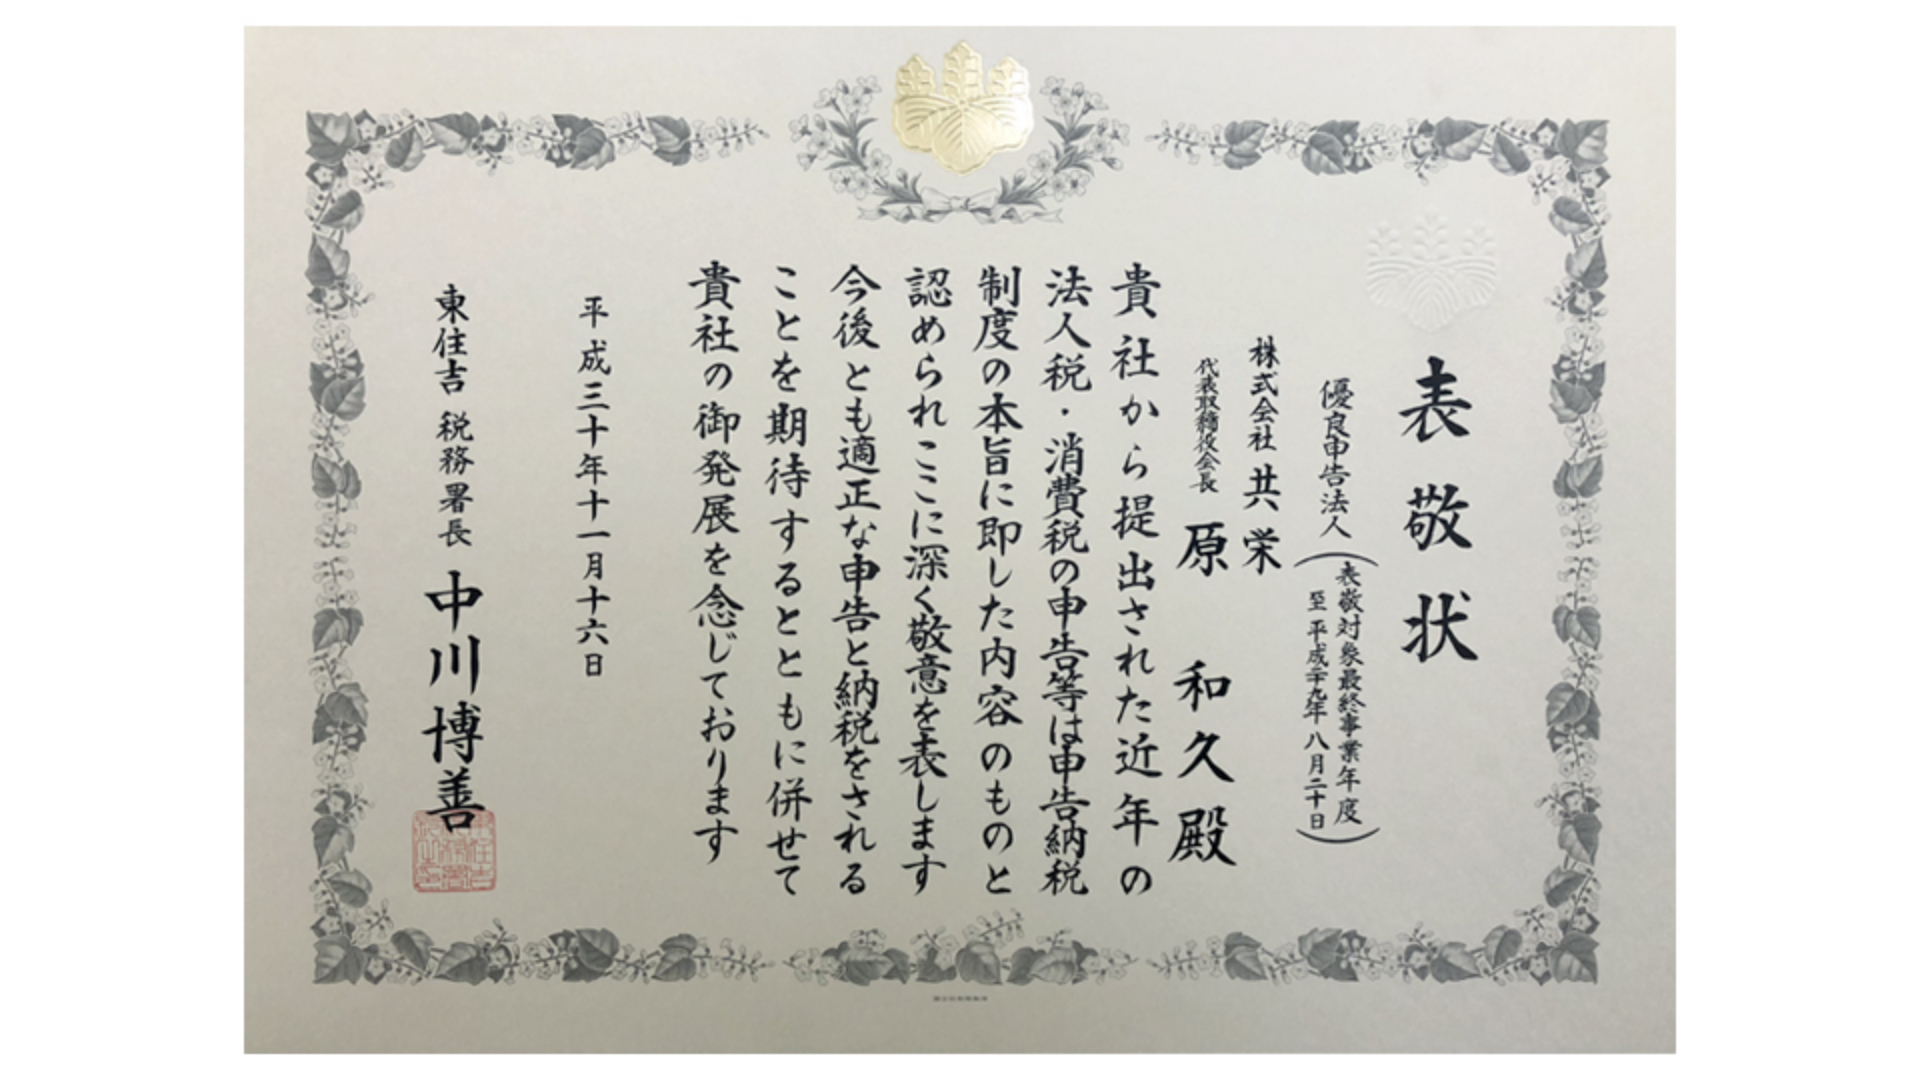 表敬状
優良申告法人
(表敬対象最終事業年度
至 平成二十九年 八月二十日)
株式会社 共栄
代表取締役会長 原 和久 殿
貴社から提出された近年の
法人税・消費税の申告等は申告納税
制度の本旨に即した内容のものと
認められここに深く敬意を表します
今後とも適正な申告と納税をされる
ことを期待するとともに併せて
貴社の御発展を念じております
平成三十年十一月十六日
東住吉 税務署長 中川博善